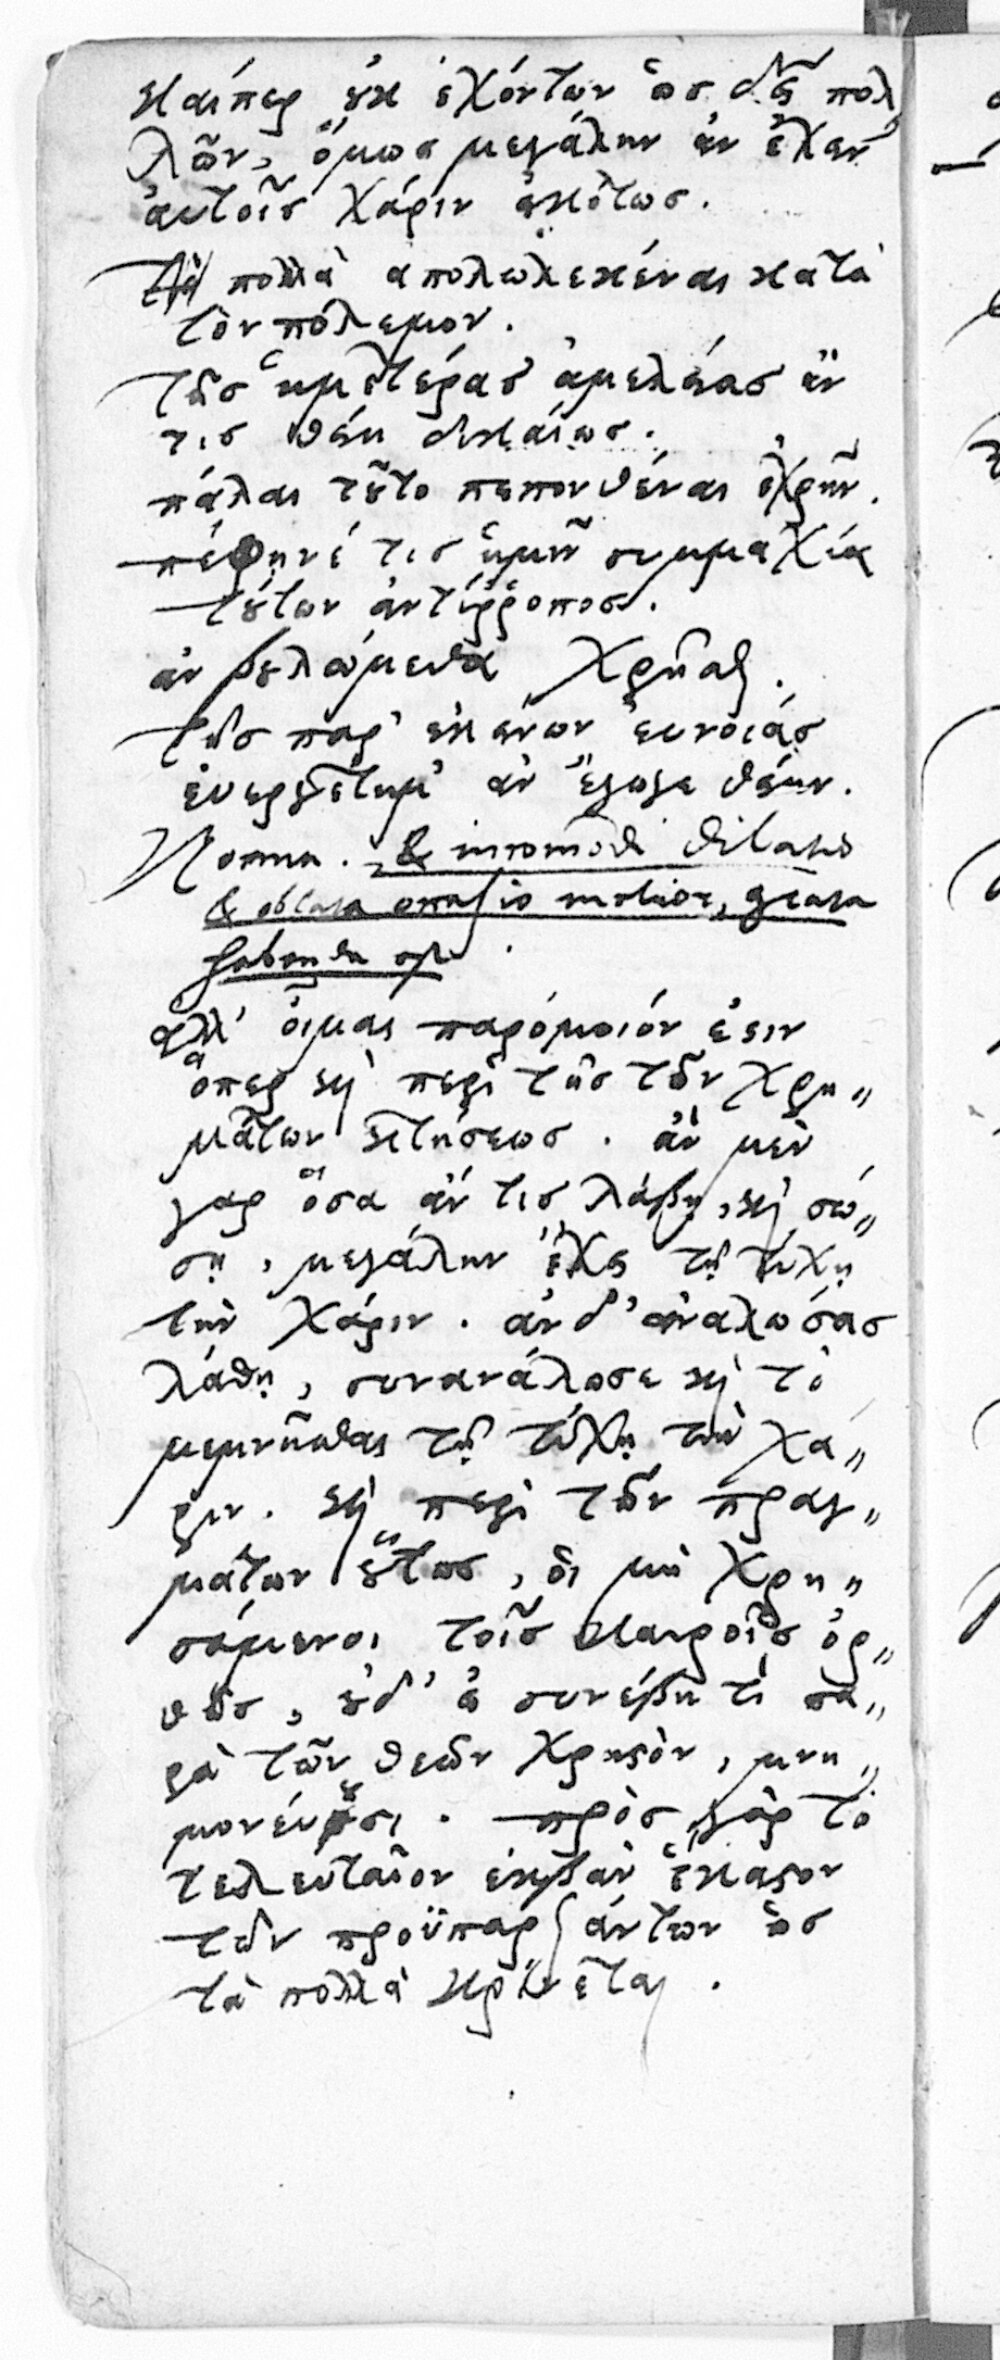 καίπερ ȣ̓κ ἐχόντων ὡς δεῖ πολ
λῶν, ὅμως μεγάλην ἂν ἔχειν
αὐτοῖς χάριν εἰκότως.
Τὸ πολλὰ απολωλεκέναι κατὰ
τὸν πόλεμον.
τῆς ἡμετέρας ἀμελείας ἄν
τις θείη δικαίως.
πάλαι τȣ͂το πεπονθέναι ἐχρῆν.
πέφηνέ τις ἡμῖν συμμαχία
τȣ́των ἀντίῤῥοπος.
ἂν βȣλώμεθα χρῆσθαι.
τῆς παρ' ἐκείνων ἐυνοιάς
ἐυεργέτημ' ἂν ἔγωγε θείην.
Norma. & incommodi dilatio
& oblata occasio melior, gratia
habenda est.
ἀλλ' ὄιμαι παρόμοιόν ἐϛιν
ὅπερ καὶ περὶ τῆς τῶν χρη„
μάτων κτήσεως. ἂν μὲν
γαρ ὅσα ἄν τις λάβῃ, καὶ σώ„
σῃ, μεγάλην ἔχει τῇ τύχῃ
τὴν χάριν. ἂν δ' ἀναλώσας
λάθῃ, συνανάλωσε καὶ τὸ
μεμνῆσθαι τῇ τύχῃ τὴν χά„
ριν. καὶ περὶ τῶν πραγ„
μάτων ȣ̔́τως, ὁι μὴ χρη„
σάμενοι τοῖς καιροῖς ὀρ„
θῶς, ȣ̓δ' εἰ συνέβη τὶ πα„
ρὰ τῶν θεῶν χρηϛὸν, μνη„
μονέυȣσι. πρὸς γὰρ τὸ
τελευταῖον ἐκβὰν ἕκαϛον
τῶν προϋπαρξάντων ὡς
τὰ πολλὰ κρίνεται.